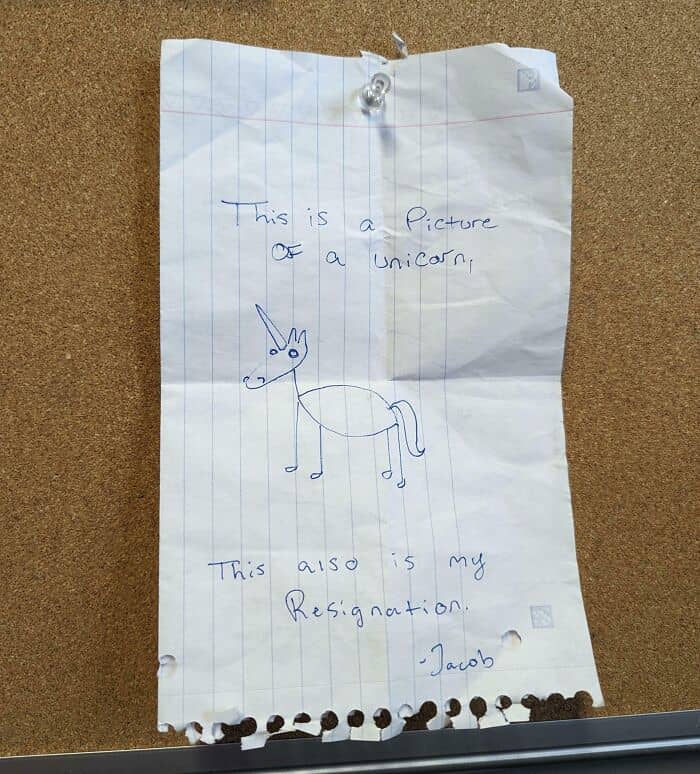 This is a Picture
OF a unicorn,
This also is my
Resignation.
-Jacob